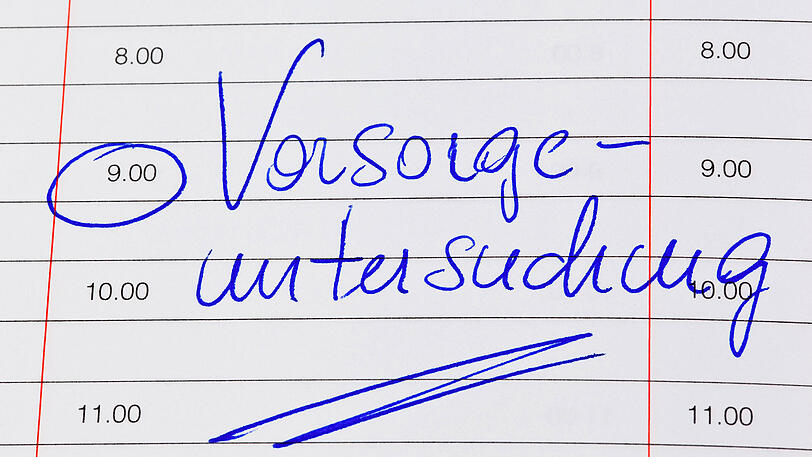 8.00 8.00
Vorsorge-
9.00 9.00
untersuchung
10.00 10.00
11.00 11.00